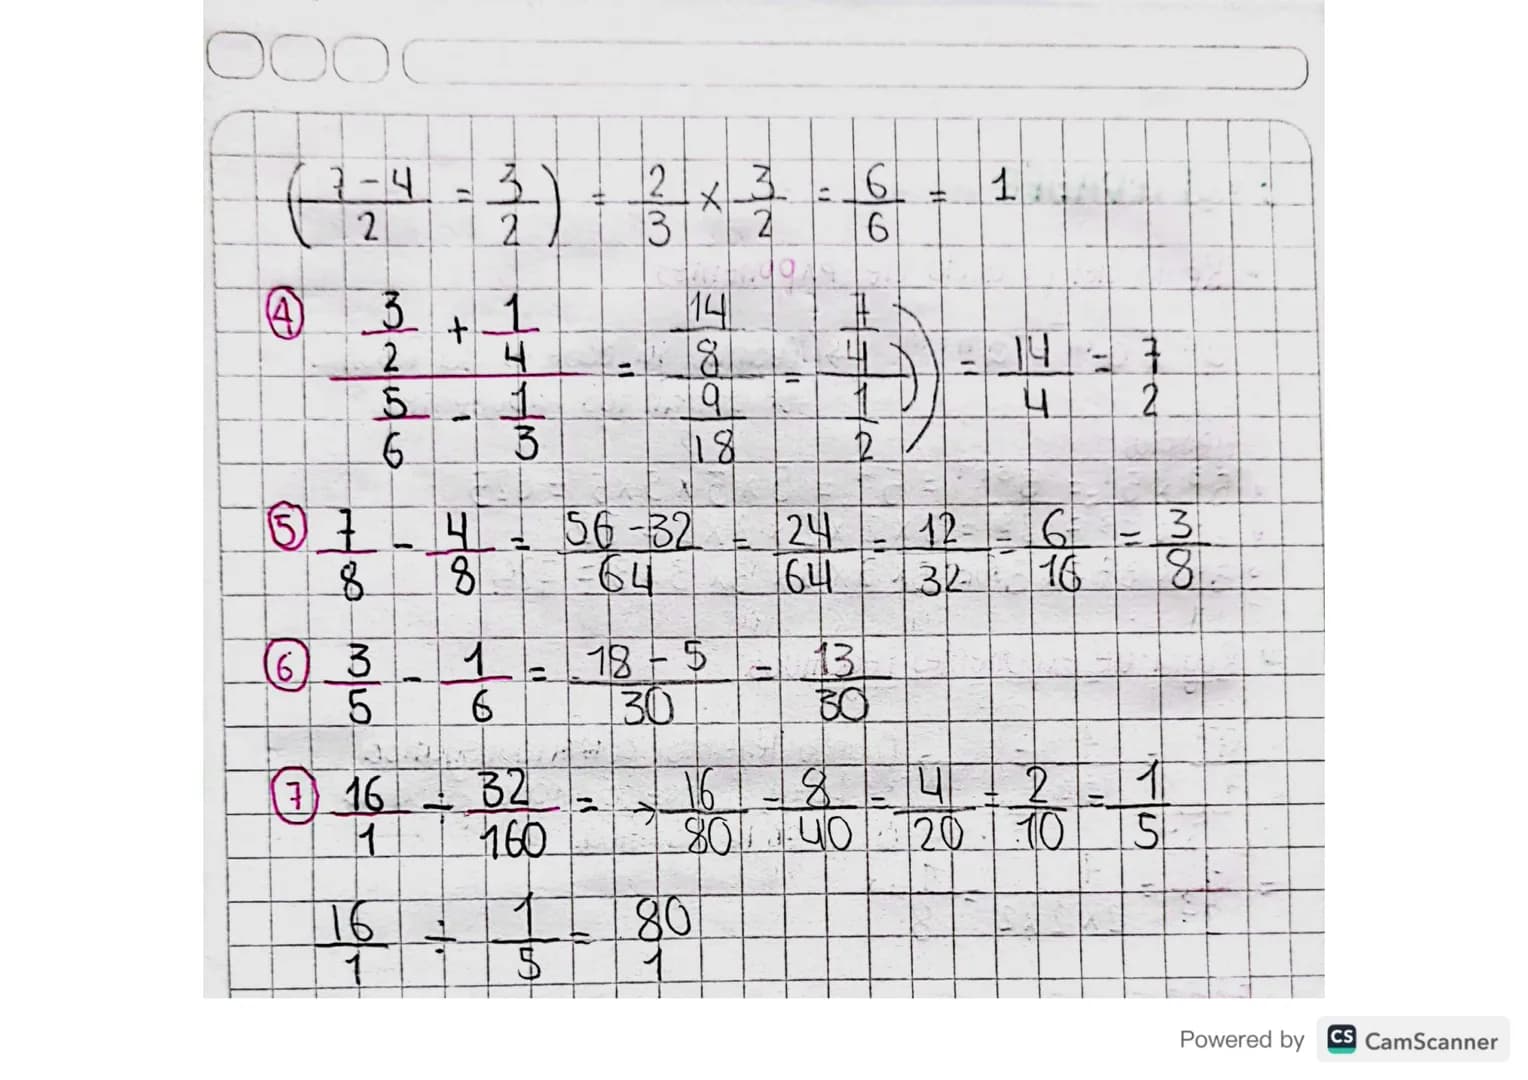 (7-4/2 = 3/2) = 2/3 × 3/2 = 6/6 = 1
④ (3/2 + 1/4)/(5/6 - 1/3) = (14/8)/(9/18) = (7/4)/(1/2) = 14/4 = 7/2
⑤ 7/8 - 4/8 = 56-32/64 = 24/64 = 12/32 = 6/16 = 3/8
⑥ 3/5 - 1/6 = 18-5/30 = 13/30
⑦ 16/1 ÷ 32/160 = → 16/80 = 8/40 = 4/20 = 2/10 = 1/5
16/1 ÷ 1/5 = 80/1
Powered by CS CamScanner